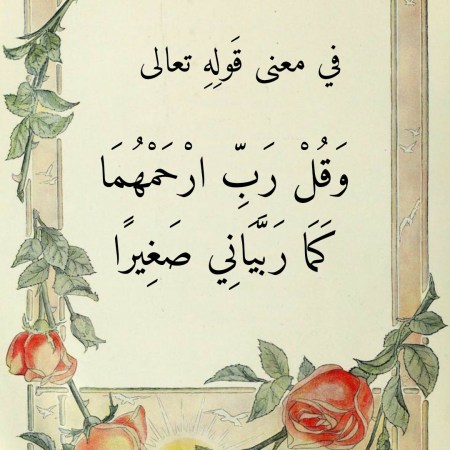 في معنى قَولِهِ تعالى
وَقُلْ رَبِّ ارْحَمْهُمَا
كَمَا رَبَّيَانِي صَغِيرًا